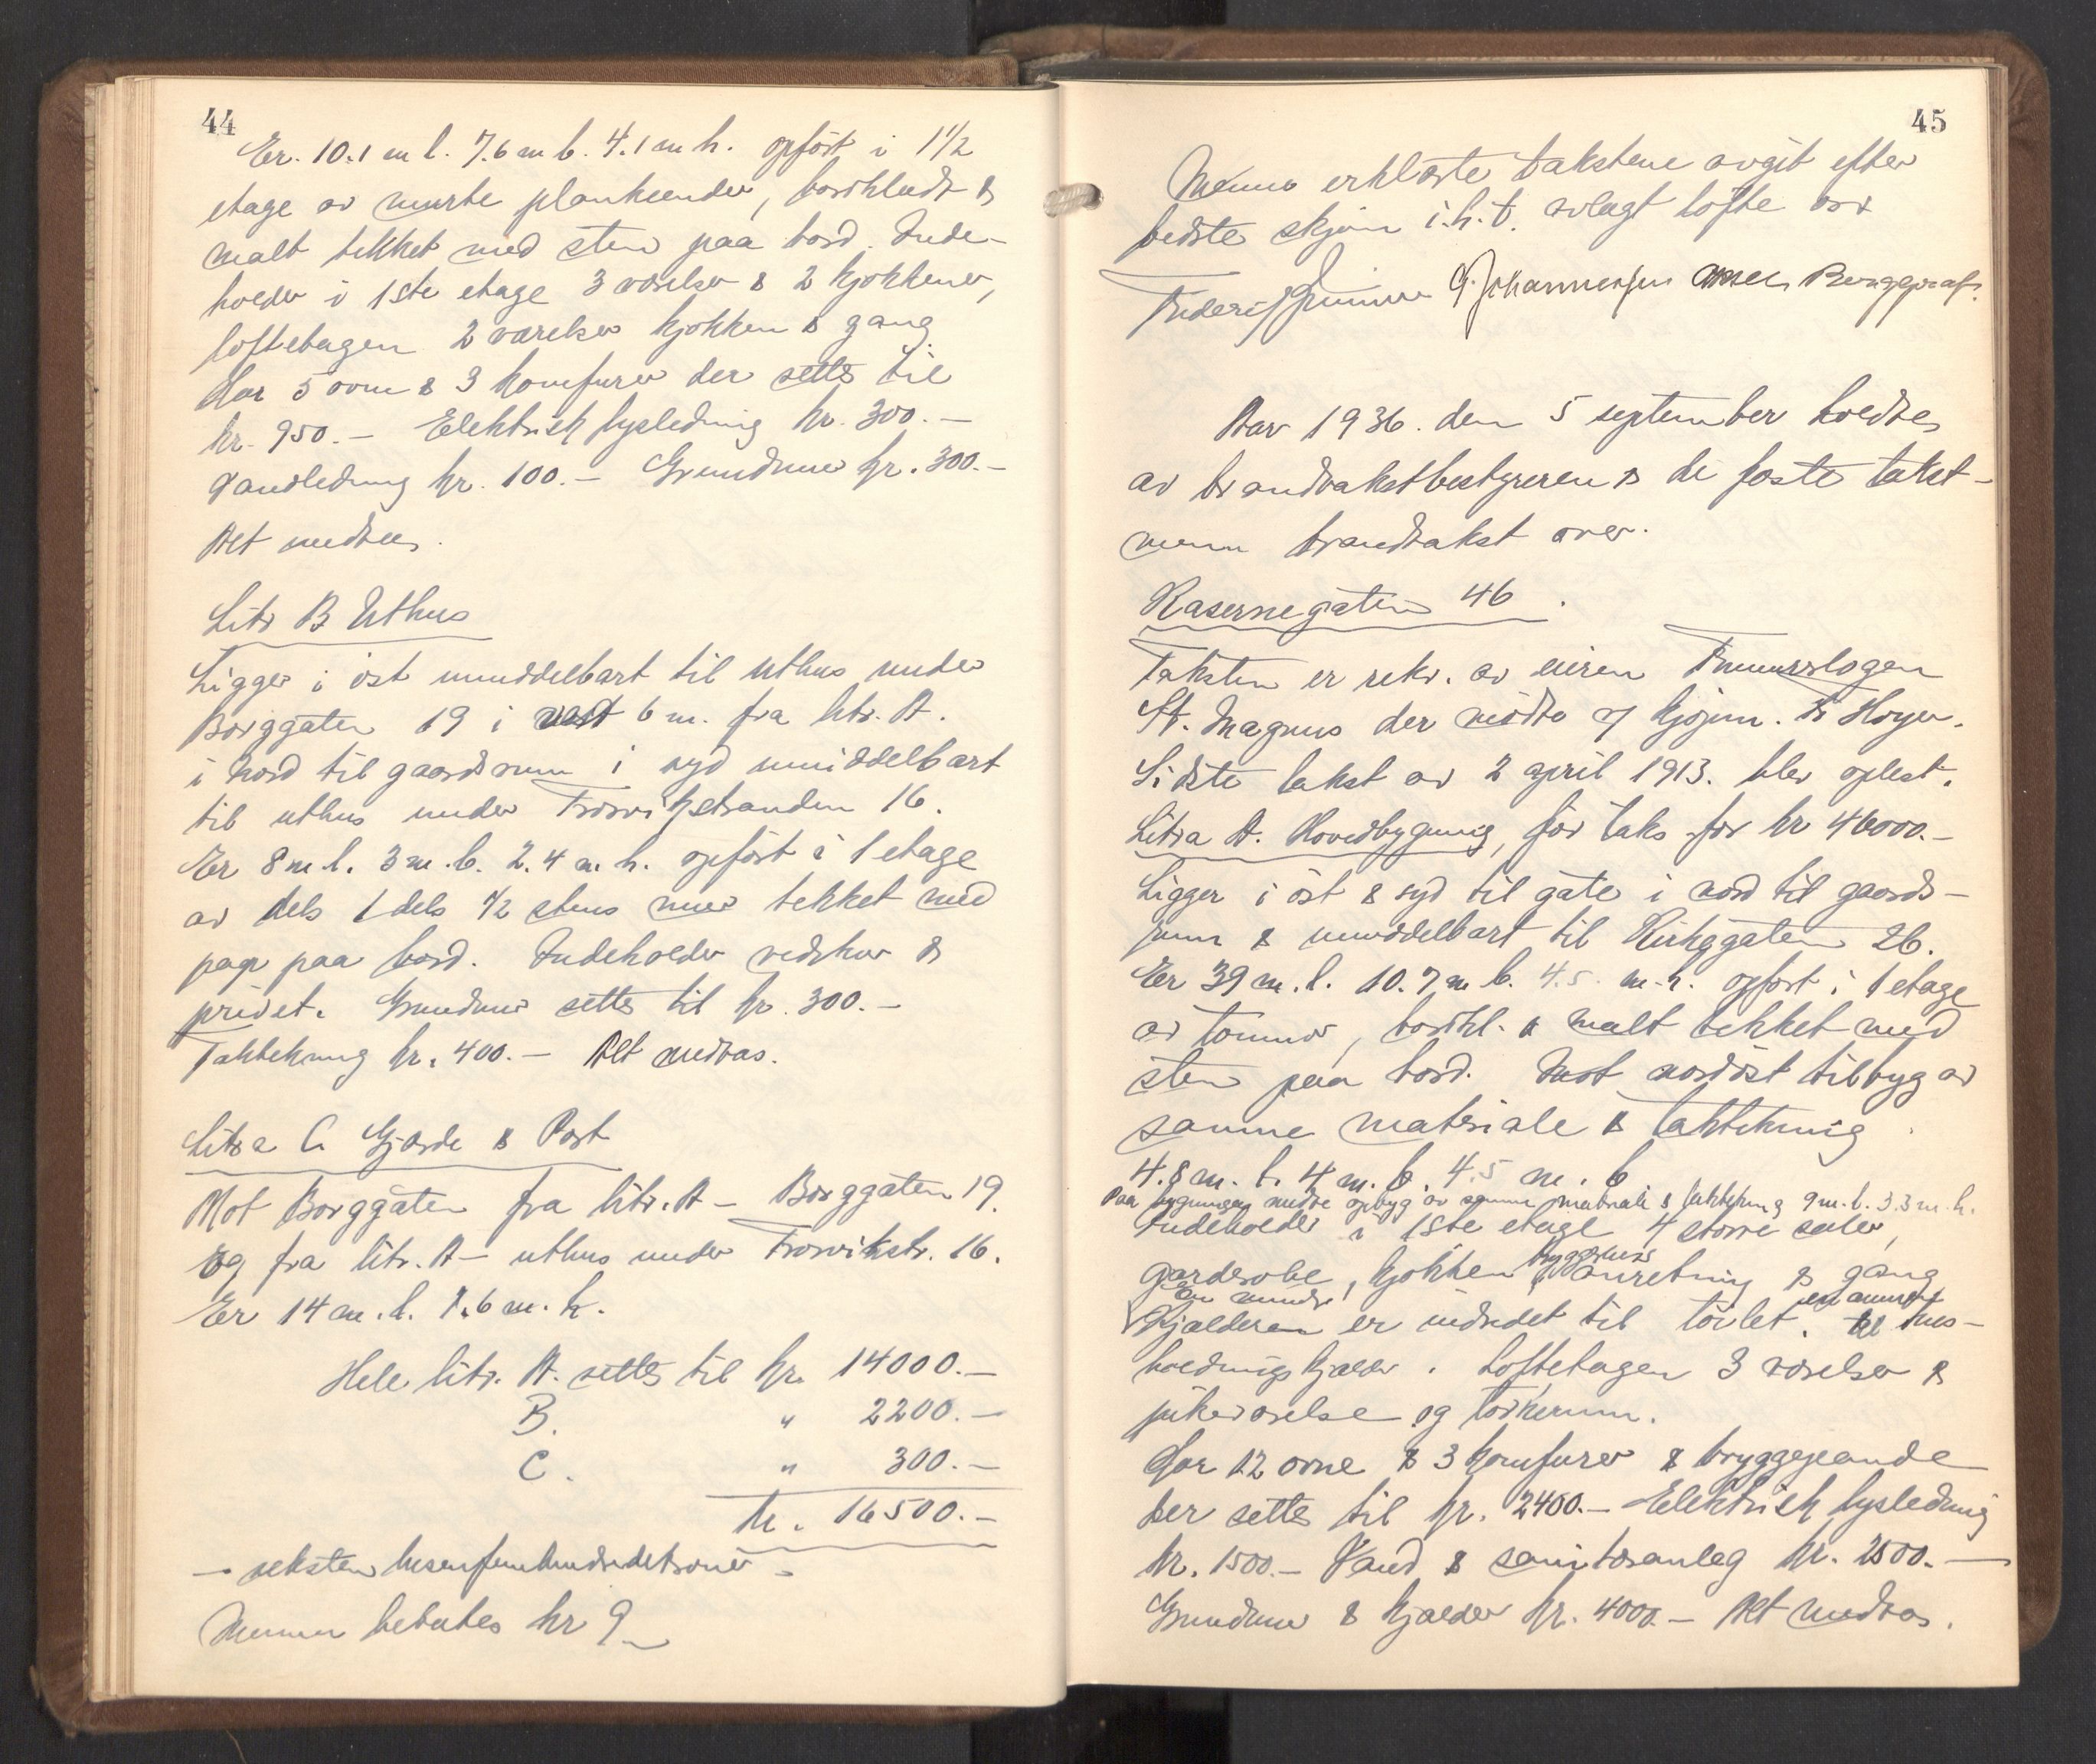 44
Er. 10.1 m l. 7.6 m b. 4.1 m h. opført i 1 1/2
etage av murte plankeender, bordklædt &
malt tekket med sten paa bord. Inde-
holder i 1ste etage 3 værelser & 2 kjøkkener,
loftetagen 2 værelser kjøkken & gang.
Har 5 ovne & 3 komfurer der settes til
kr. 950.- Elektrisk lysledning kr. 300.-
Vandledning kr. 100.- Grundmur kr. 300.-
Alt medtas.
Litr B Uthus
Ligger i øst umiddelbart til uthus under
Borggaten 19 i vest 6 m. fra litr. A.
i nord til gaardsrum i syd umiddelbart
til uthus under Trosvikstranden 16.
Er 8 m. l. 3 m. b. 2.4 m. h. opført i 1 etage
av dels 1 dels 1/2 stens mur tekket med
papp paa bord. Indeholder vedskur &
privet. Grundmur settes til kr. 300.-
Taktekning kr. 400.- Alt medtas.
Litra C Gjærde & Port
Mot Borggaten fra litr. A - Borggaten 19.
og fra litr. A - uthus under Trosvikstr. 16.
Er 14 m. l. 1.6 m. h.
Hele litr. A. settes til kr. 14000.-
B. " 2200.-
C. " 300.-
kr. 16500.-
- seksten tusenfemhundredekroner -
Mennene betaltes kr 9.-
45
Mennene erklærte taksten avgit efter
bedste skjøn i. h. t. avlagt løfte
G. Johannessen Anselm Berggraf.
Aar 1936. den 5 september holdtes
av brandtakstbestyreren & de faste takst-
menn brandtakst over.
Kasernegaten 46.
Taksten er rekv. av eieren Frimurerlogen
St. Magnus der møtte v/ kjøpm. Fr Høyer.
Sidste takst av 2 april 1913. blev oplest.
Litra A. Hovedbygning, før takst for kr 46000.-
Ligger i øst & syd til gate i nord til gaards-
rum & umiddelbart til Kirkegaten 26.
Er 39 m. l. 10.7 m b. 4.5 m. h. opført i 1 etage
av tømmer, bordkl. & malt tekket med
sten paa bord. Mot nordøst tilbyg av
samme materiale & taktekning.
4.8 m. l. 4 m. b. 4.5 m. h
Paa bygningens midte opbyg av samme materiale & taktekning 9 m. l. 3.3 m. h.
Indeholder i 1ste etage 4 større saler,
garderobe, kjøkken bryggerhus anretning & gang
En mindre en annen
Kjælderen er indredet til toilet. til hus-
holdningskjælder. Loftetagen 3 værelser &
pikeværelse og tørkerum.
Har 12 ovne & 3 komfurer & bryggepande
der settes til kr. 2400.- Elektrisk lysledning
kr. 1500.- Vand & sanitæranlæg kr. 2500.-
Grundmur & kjælder kr. 4000.- Alt medtas.